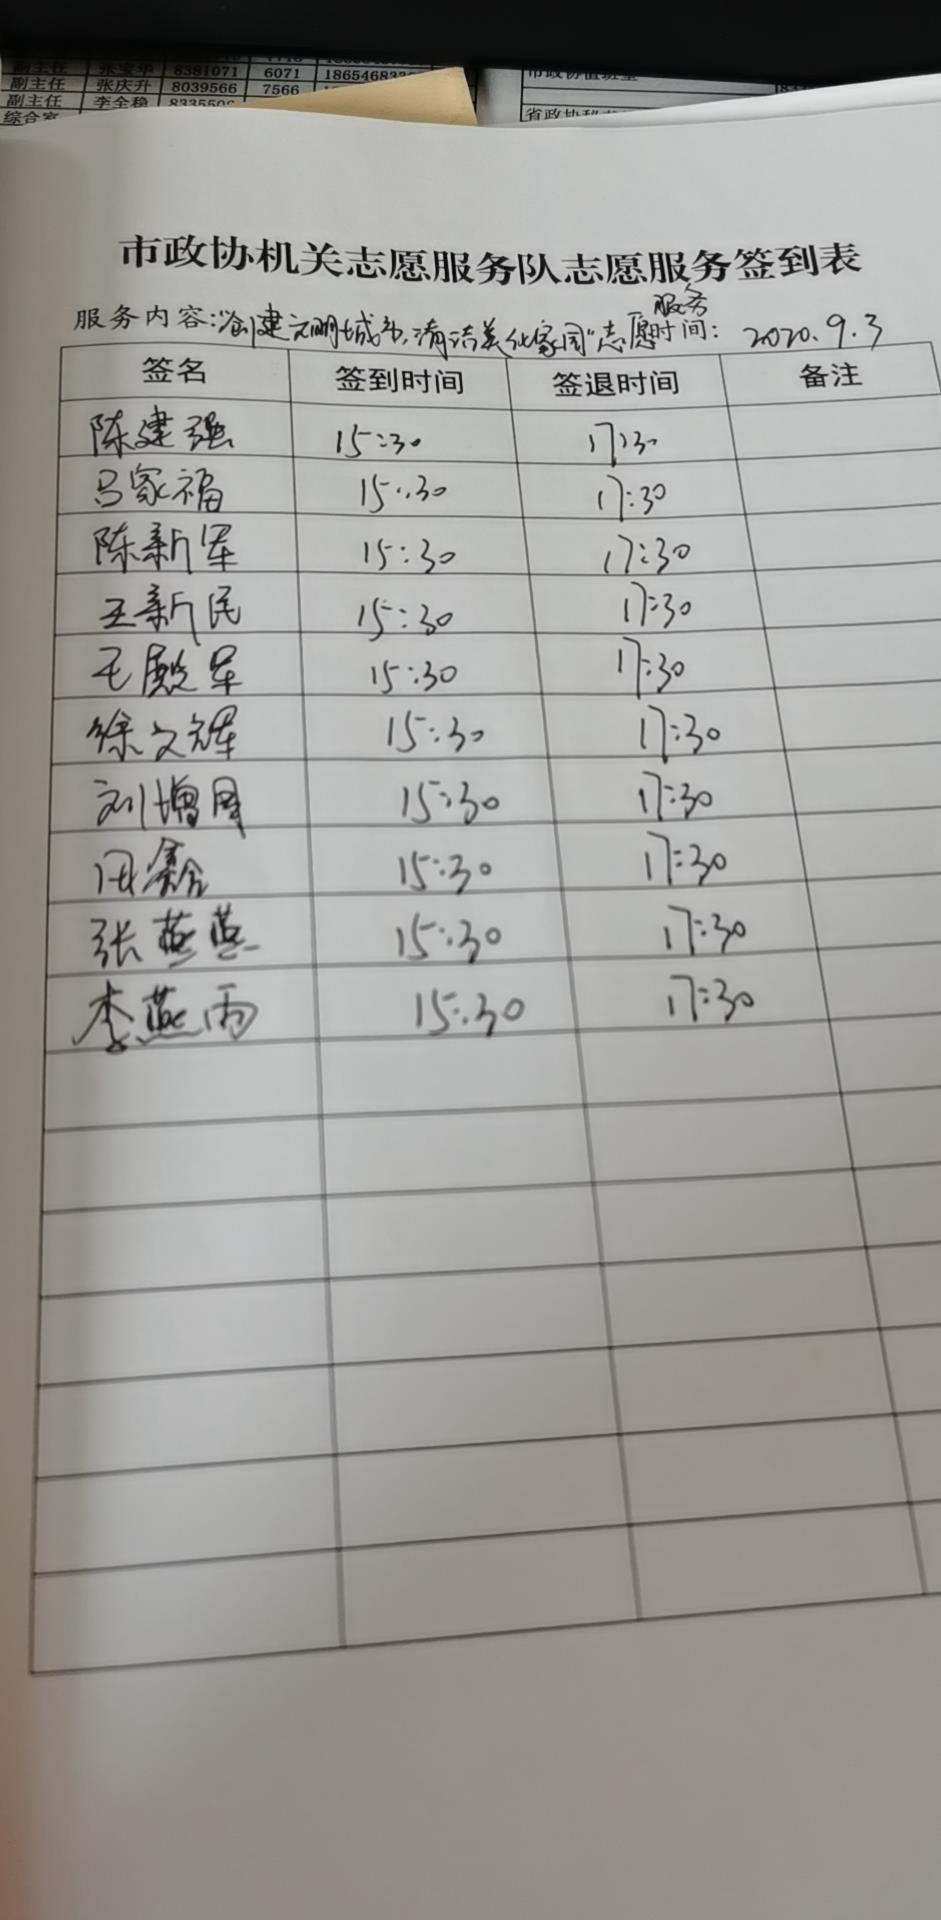 副主任 张宝华 8381071 6071
副主任 张庆升 8039566 7566
副主任 李全稳
综合室
市政协机关志愿服务队志愿服务签到表
服务内容:"创建文明城市,清洁美化家园"志愿服务 时间: 2020.9.3
签名 签到时间 签退时间 备注
陈建强 15:30 17:30
吕家福 15:30 17:30
陈新军 15:30 17:30
王新民 15:30 17:30
王殿军 15:30 17:30
徐文辉 15:30 17:30
刘增国 15:30 17:30
田鑫 15:30 17:30
张燕燕 15:30 17:30
李燕雨 15:30 17:30